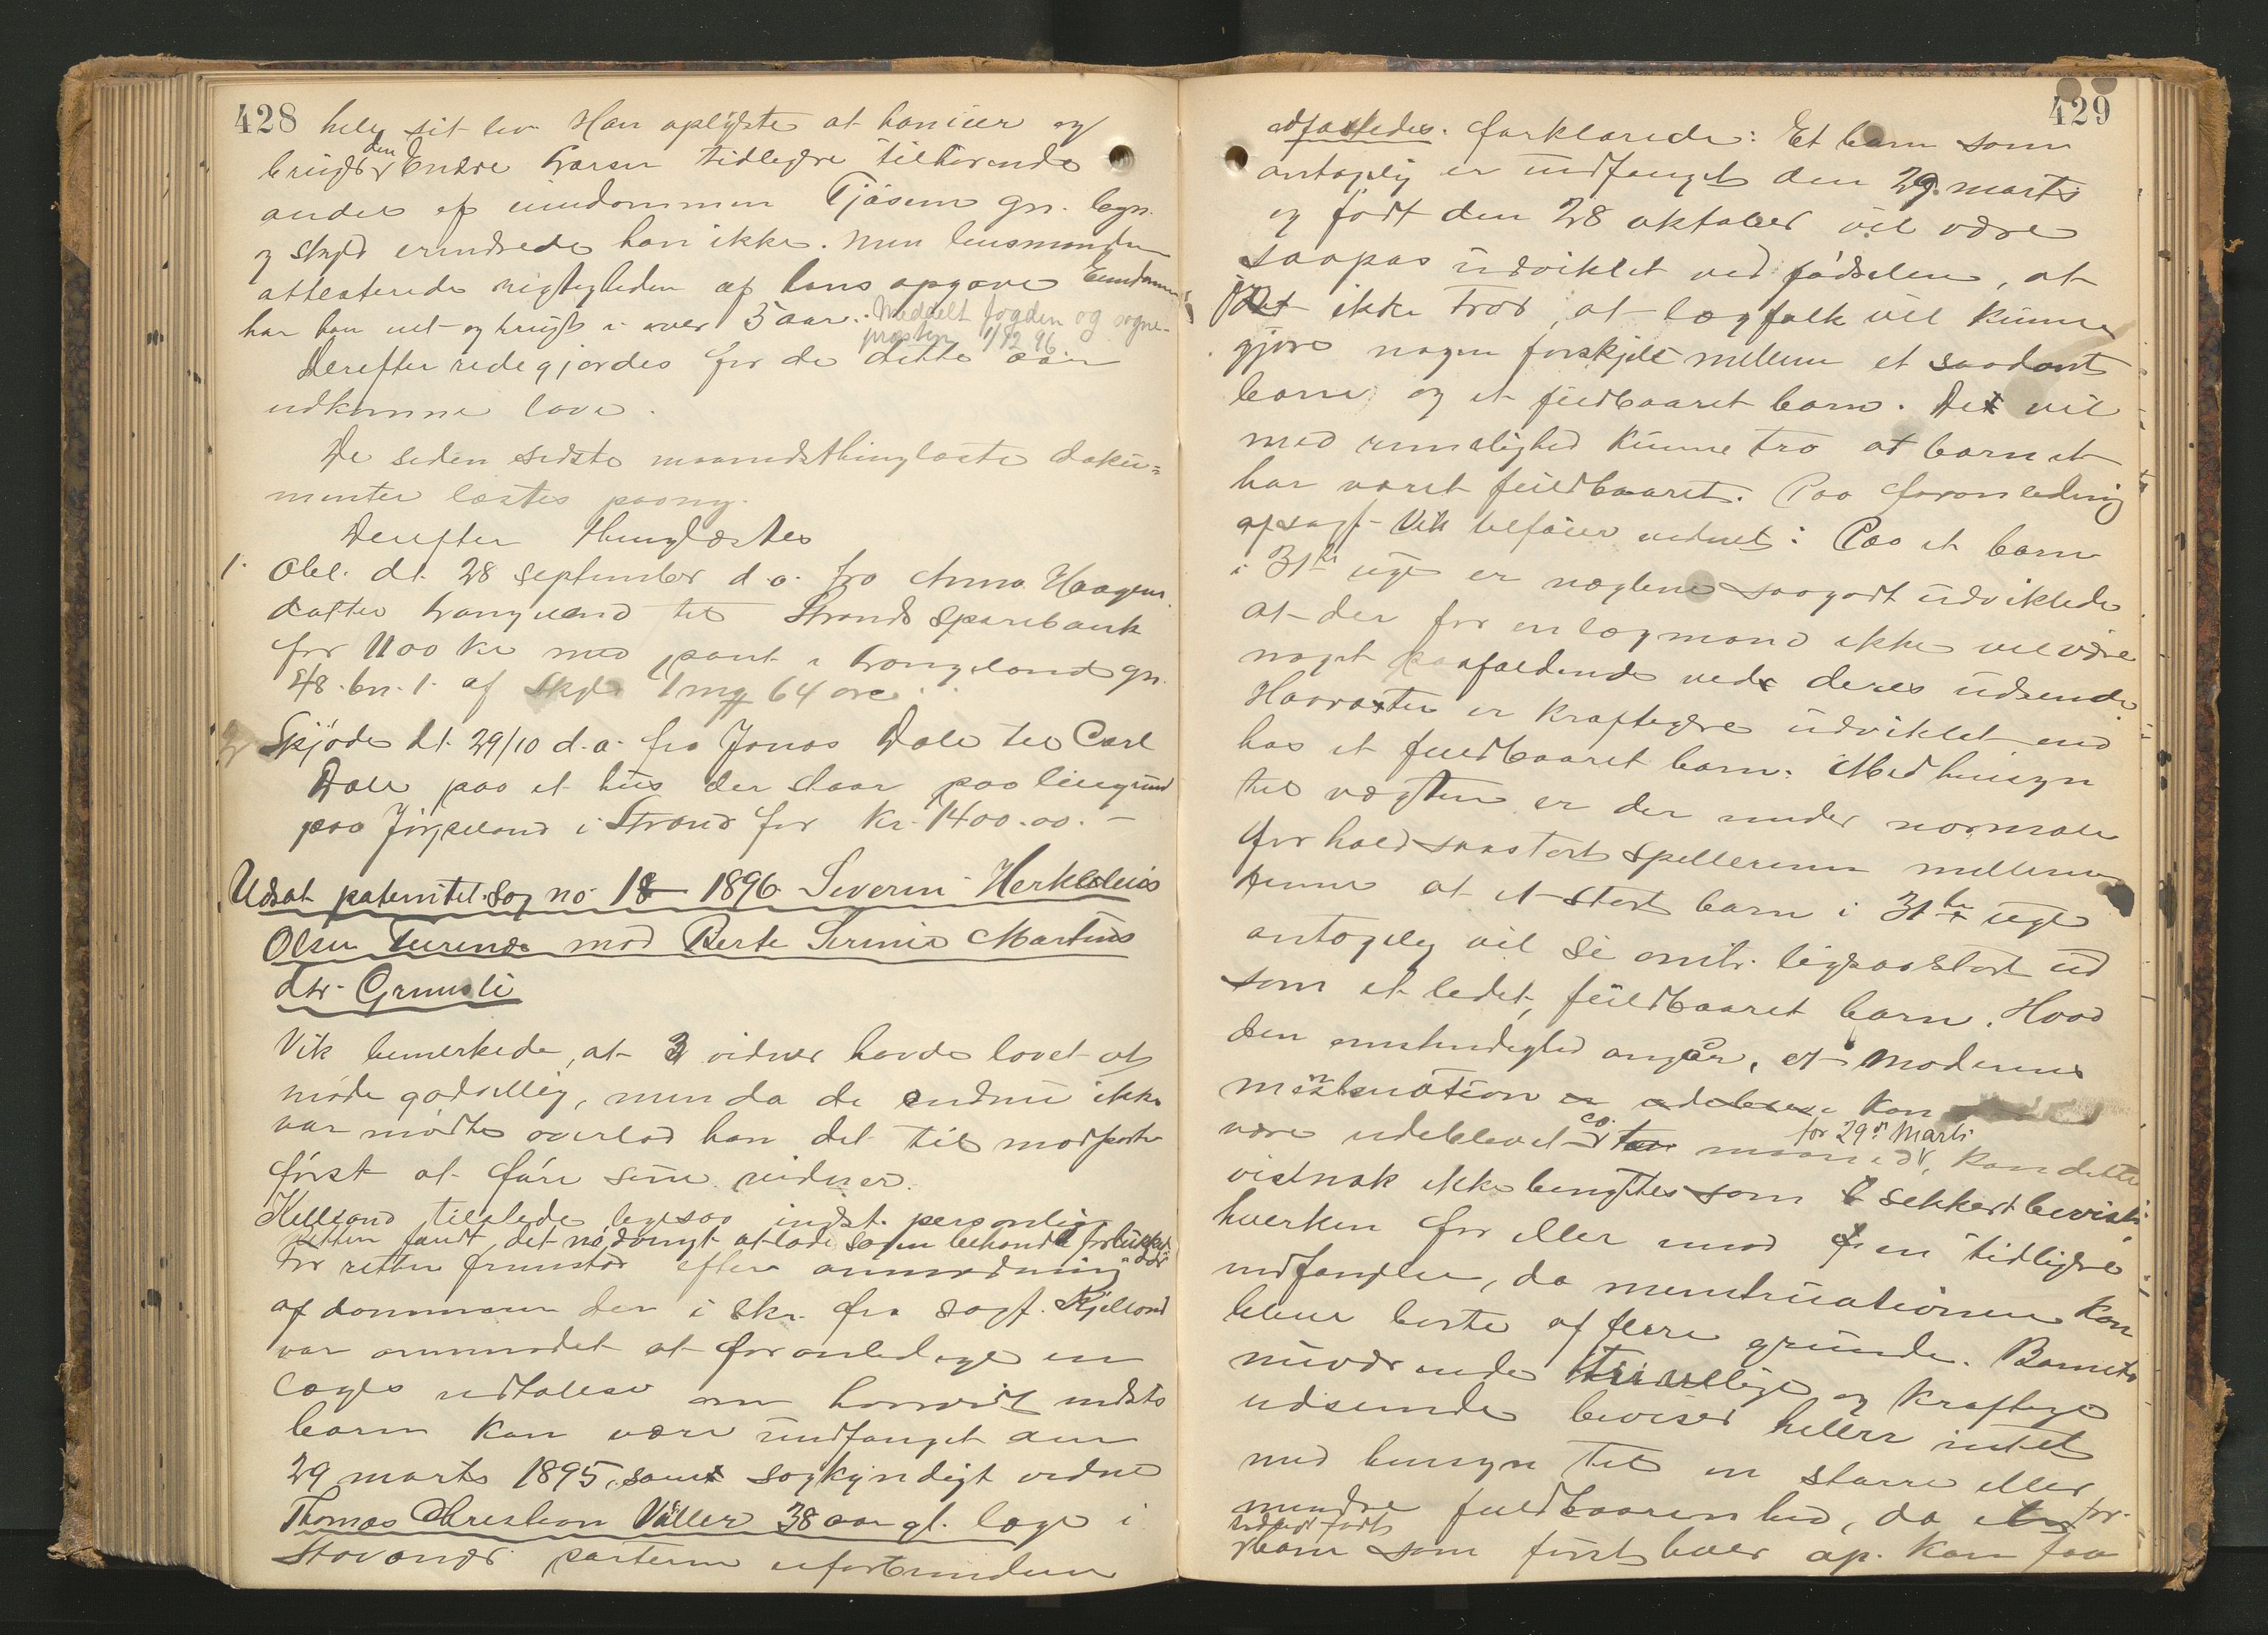 428
hele sit liv. Han oplyste at han eier og
brugte den Endre Larsen tidligere tilhørende
andel af eiendommen Tjåsem gn. bgn.
og skyld erindrede han ikke. Men lensmanden
attesterede rigtigheden af hans opgave Eiendommen
har han eiet og brugt i over 5 aar. Meddelt fogden og sogne-
præsten 1/12 96.
Derefter redegjordes for de dette aar
udkomne love.
De siden sidste maanedsthinglæste doku=
menter læstes paany.
Derefter thinglæstes
1. Obl. dt. 28 september d.a. fra Anna Haagens
datter Langeland til Strands Sparebank
for 1100 kr med pant i Langeland gn.
48. bn. 1. af Skyld 1 mrk 64 øre.
2 Skjøde dt. 29/10 d.a. fra Jonas Dale til Carl
Dale paa et hus der staar paa leiegrund
paa Jørpeland i Strand for Kr. 1400.00. -
Udsat paternitet.sag no 18 1896 Severin Herkeleus
Olsen mod Berte Serine Martins
dtr. Grunsli
Vik bemerkede, at 3 vidner havde lovet at
møde godvillig, men da de endnu ikke
var mødte overlod han det til modparten
først at føre sine vidner.
Kielland tilstede ligesaa indst. personlig
Retten fandt det nødvendigt at lade sagen behandle for lukkede døre
For retten fremstod efter anmodning
af dommeren der i skr. fra sagf. Kjelland
var anmodet at foranledige en
læges udtalelse om hvorvidt indstes
barn kan være undfanget den
29 marts 1895, som sagkyndigt vidne
Thomas Christian Våller 38 aar gl. læge i
Stavanger parterne uforbunden
429
edfæstedes. forklarede: Et barn som
antagelig er undfanget den 29. marts
og født den 28 oktober vil være
saapas udviklet ved fødselen, at
ikke tror, at lægfolk vil kunne
gjøre nogen forskjel mellem et saadant
barn og et fuldbaaret barn. De vil
med rimelighed kunne tro at barnet
har været fuldbaaret. Paa foranledning
af sagf. Vik tilføier vidnet: Paa et barn
i 31te uge er neglene saagodt udviklede
at der for en lægmand ikke vil være
noget paafaldende ved deres udseende.
Haarvæxten er kraftigere udviklet end
hos et fuldbaaret barn. Med hensyn
til vægten er der under normale
forhold saa stort spillerum mellem
at et stort barn i 31te uge
antagelig vil se omtr. ligesaa stort ud
som et ledet, fuldbaaret barn. Hvad
den omstendighed angår, at Moderens
menstruation kan
være udeblevet ca. maaned før 29de Marts, kan dette
vistnok ikke benyttes som sekkert bevis
hverken for eller imod en tidligere
undfangelse, da menstruationen kan
blive borte af flere grunde. Barnets
nuværende trivelige og kraftige
udseende beviser heller intet
med hensyn til en større eller
mindre fuldbaarenhed, da for
tidligt født
barn som først lever op. kan faa